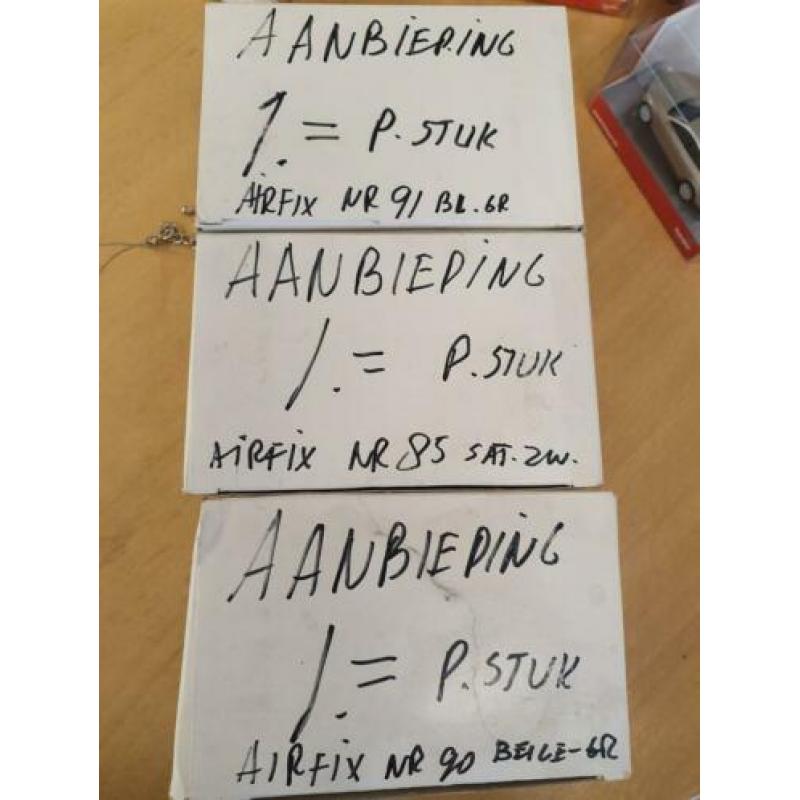 AANBIEDING
1.= P. STUK
AIRFIX NR 91 BL. GR
AANBIEDING
1.= P. STUK
AIRFIX NR 85 SAT. ZW.
AANBIEDING
1.= P. STUK
AIRFIX NR 90 BEIGE-GR